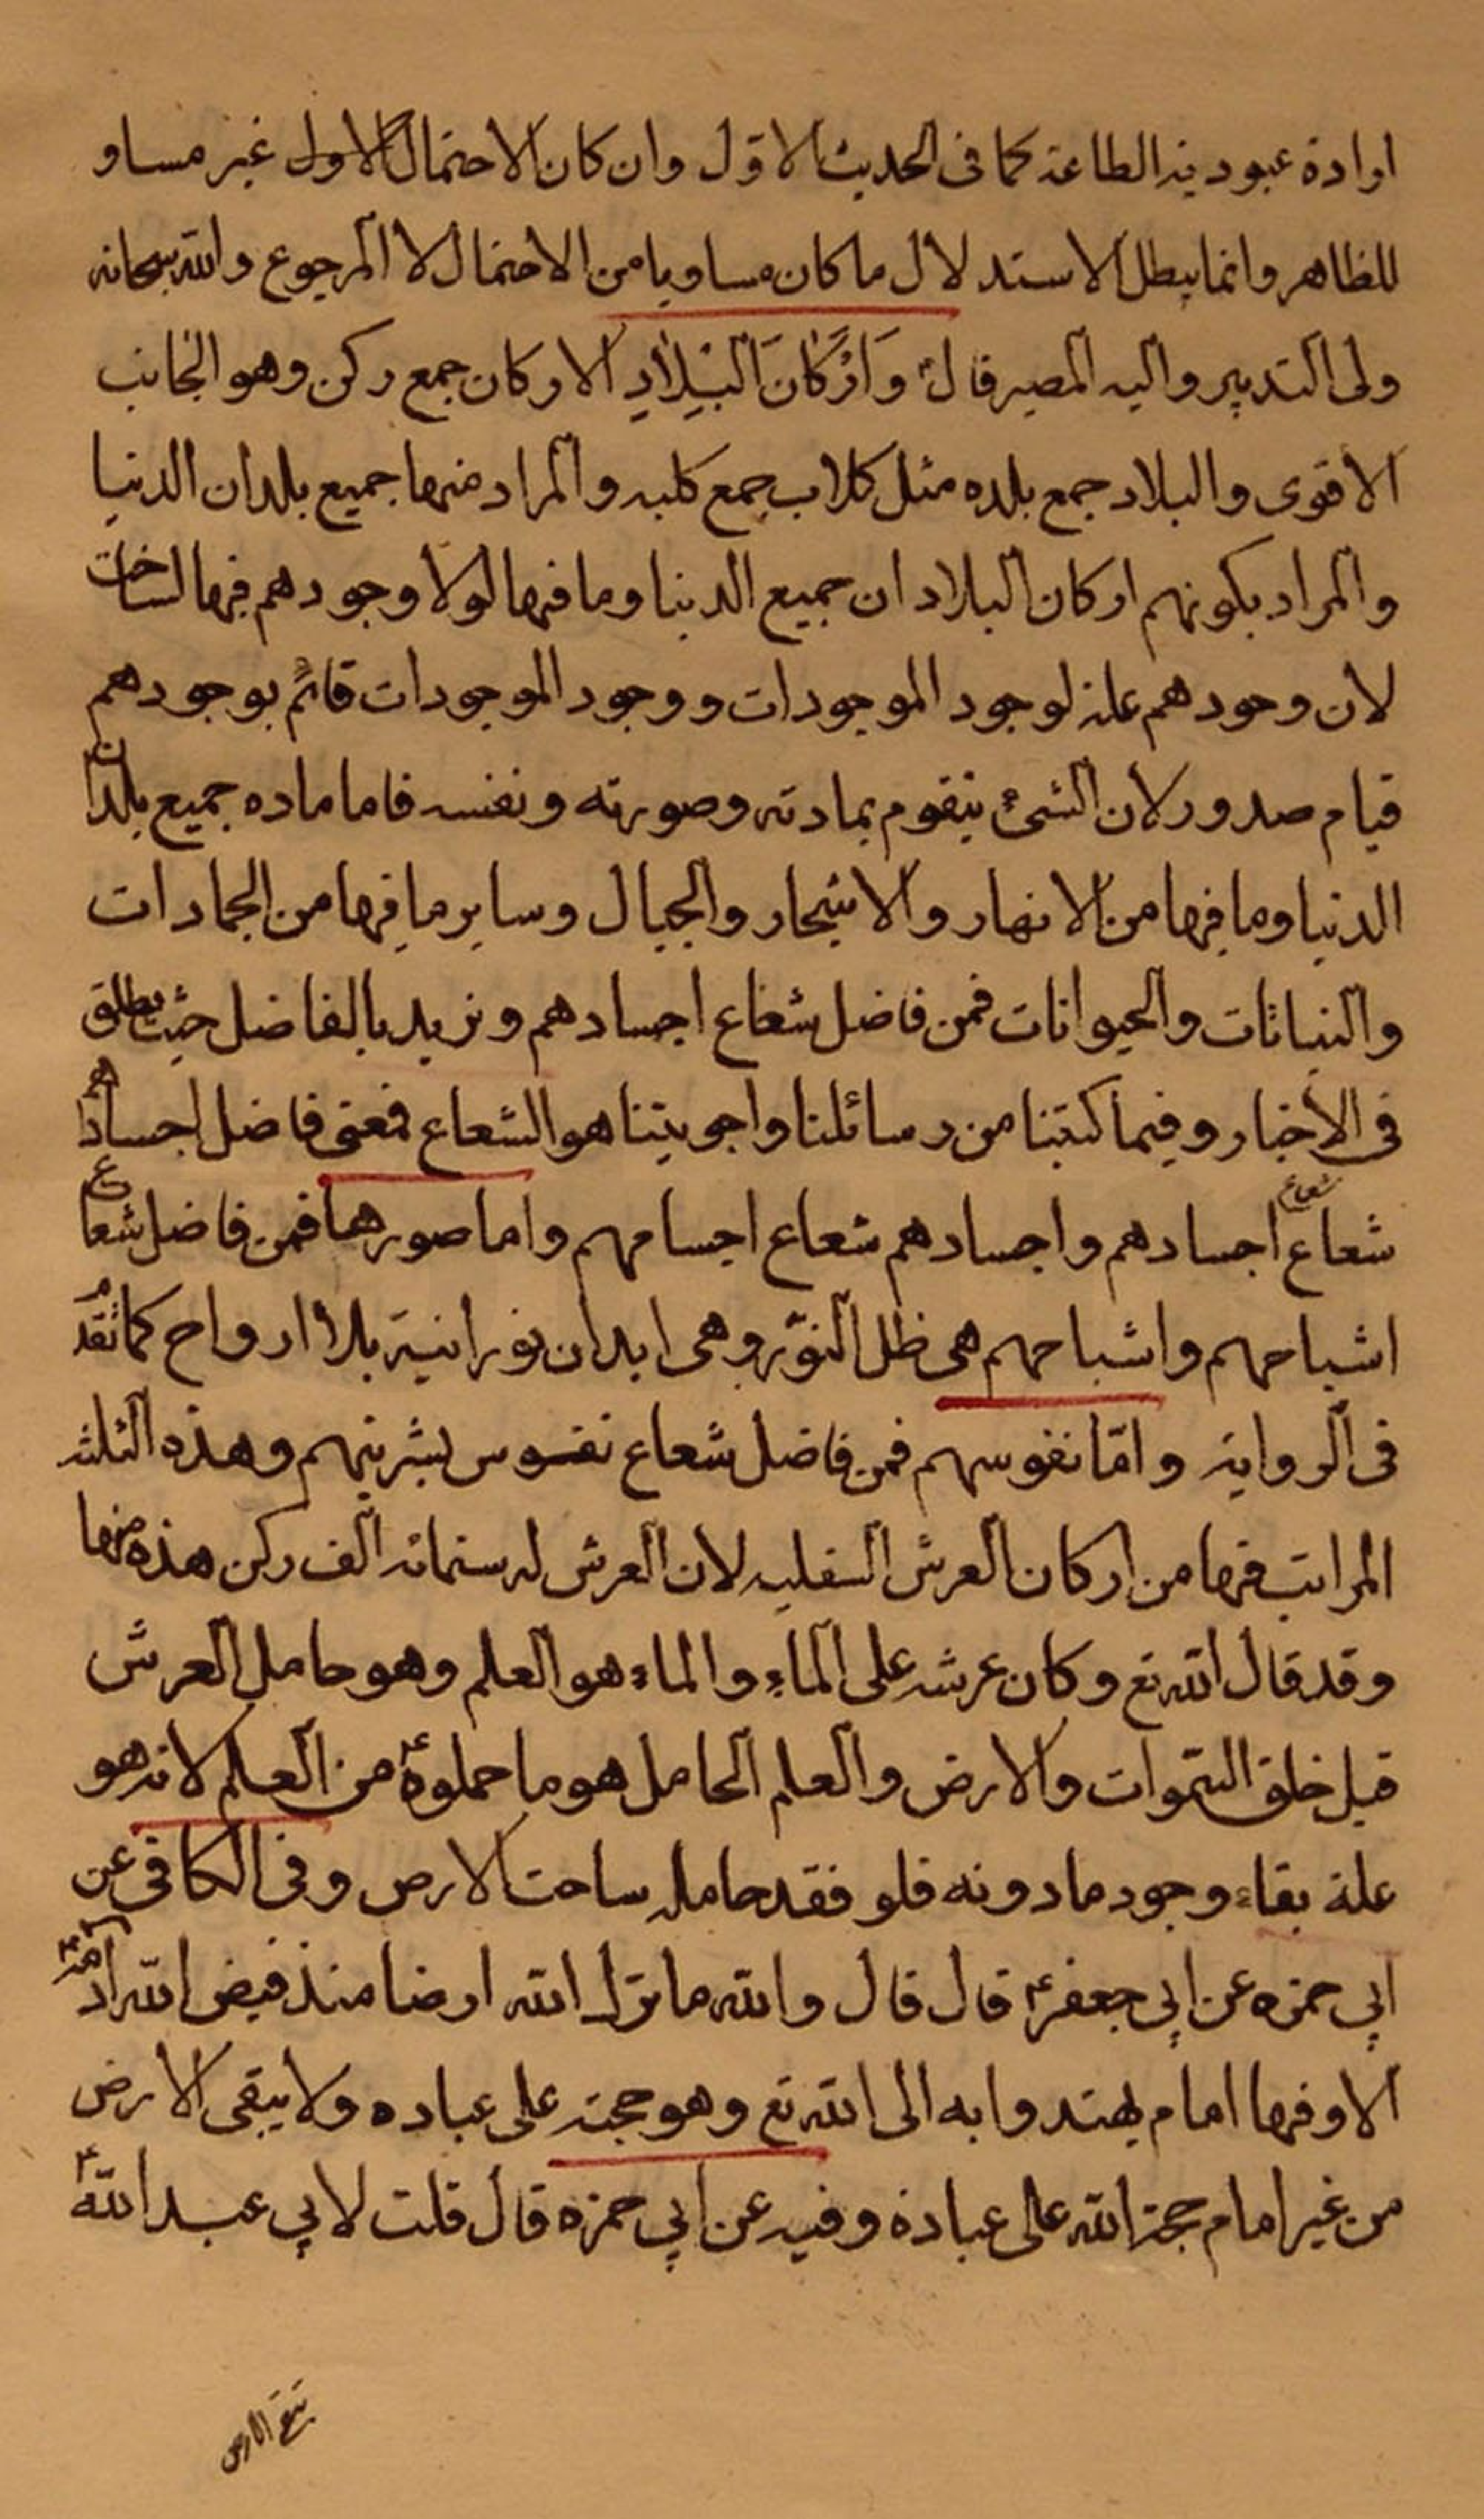 ارادة عبودية الطاعة كما فى الحديث الاوّل وان كان الاحتمال الاول غير مساو
للظاهر وانما يبطل الاستدلال ما كان مساويا من الاحتمال لا المرجوع والله سبحانه
ولى التدبير واليه المصير قال ع وَاَرْكَانَ الْبِلَادِ الاركان جمع ركن وهو الجانب
الاقوى والبلاد جمع بلده مثل كلاب جمع كلبه والمراد منها جميع بلدان الدنيا
والمراد بكونهم اركان البلاد ان جميع الدنيا وما فيها لولا وجودهم فيها لساخت
لان وجودهم علة لوجود الموجودات ووجود الموجودات قائم بوجودهم
قيام صدور لان الشئ يتقوم بمادته وصورته ونفسه فاما ماده جميع بلدان
الدنيا وما فيها من الانهار والاشجار والجبال وساير ما فيها من الجمادات
والنباتات والحيوانات فمن فاضل شعاع اجسادهم ونريد بالفاضل حيث يطلق
فى الأخبار وفيما كتبنا من رسائلنا واجوبتنا هو الشعاع فمعنى فاضل اجسادهم
شعاع اجسادهم واجسادهم شعاع اجسامهم واما صورها فمن فاضل شعاع
شعاع
اشباحهم واشباحهم هى ظل النور وهى ابدان نورانية بلا ارواح كما تقدم
فى الرواية وامّا نفوسهم فمن فاضل شعاع نفوس بشريتهم وهذه الثلث
المراتب فيها من اركان العرش السفليه لان العرش له ستمائه الف ركن هذه منها
وقد قال الله تع وكان عرشه على الماء والماء هو العلم وهو حامل العرش
قبل خلق السّموات والارض والعلم الحامل هو ما حملوه ع من العلم لانه هو
علة بقاء وجود ما دونه فلو فقد حامله ساخت الارض وفى الكافى عن
ابي حمزه عن ابي جعفر ع قال قال والله ما ترك الله ارضا منذ قبض الله ادم ع
الا وفيها امام يهتدوا به الى الله تع وهو حجته على عباده ولا يبقى الارض
من غير امام حجة الله على عباده وفيه عن ابي حمزه قال قلت لابي عبد الله ع
تبقى الارض